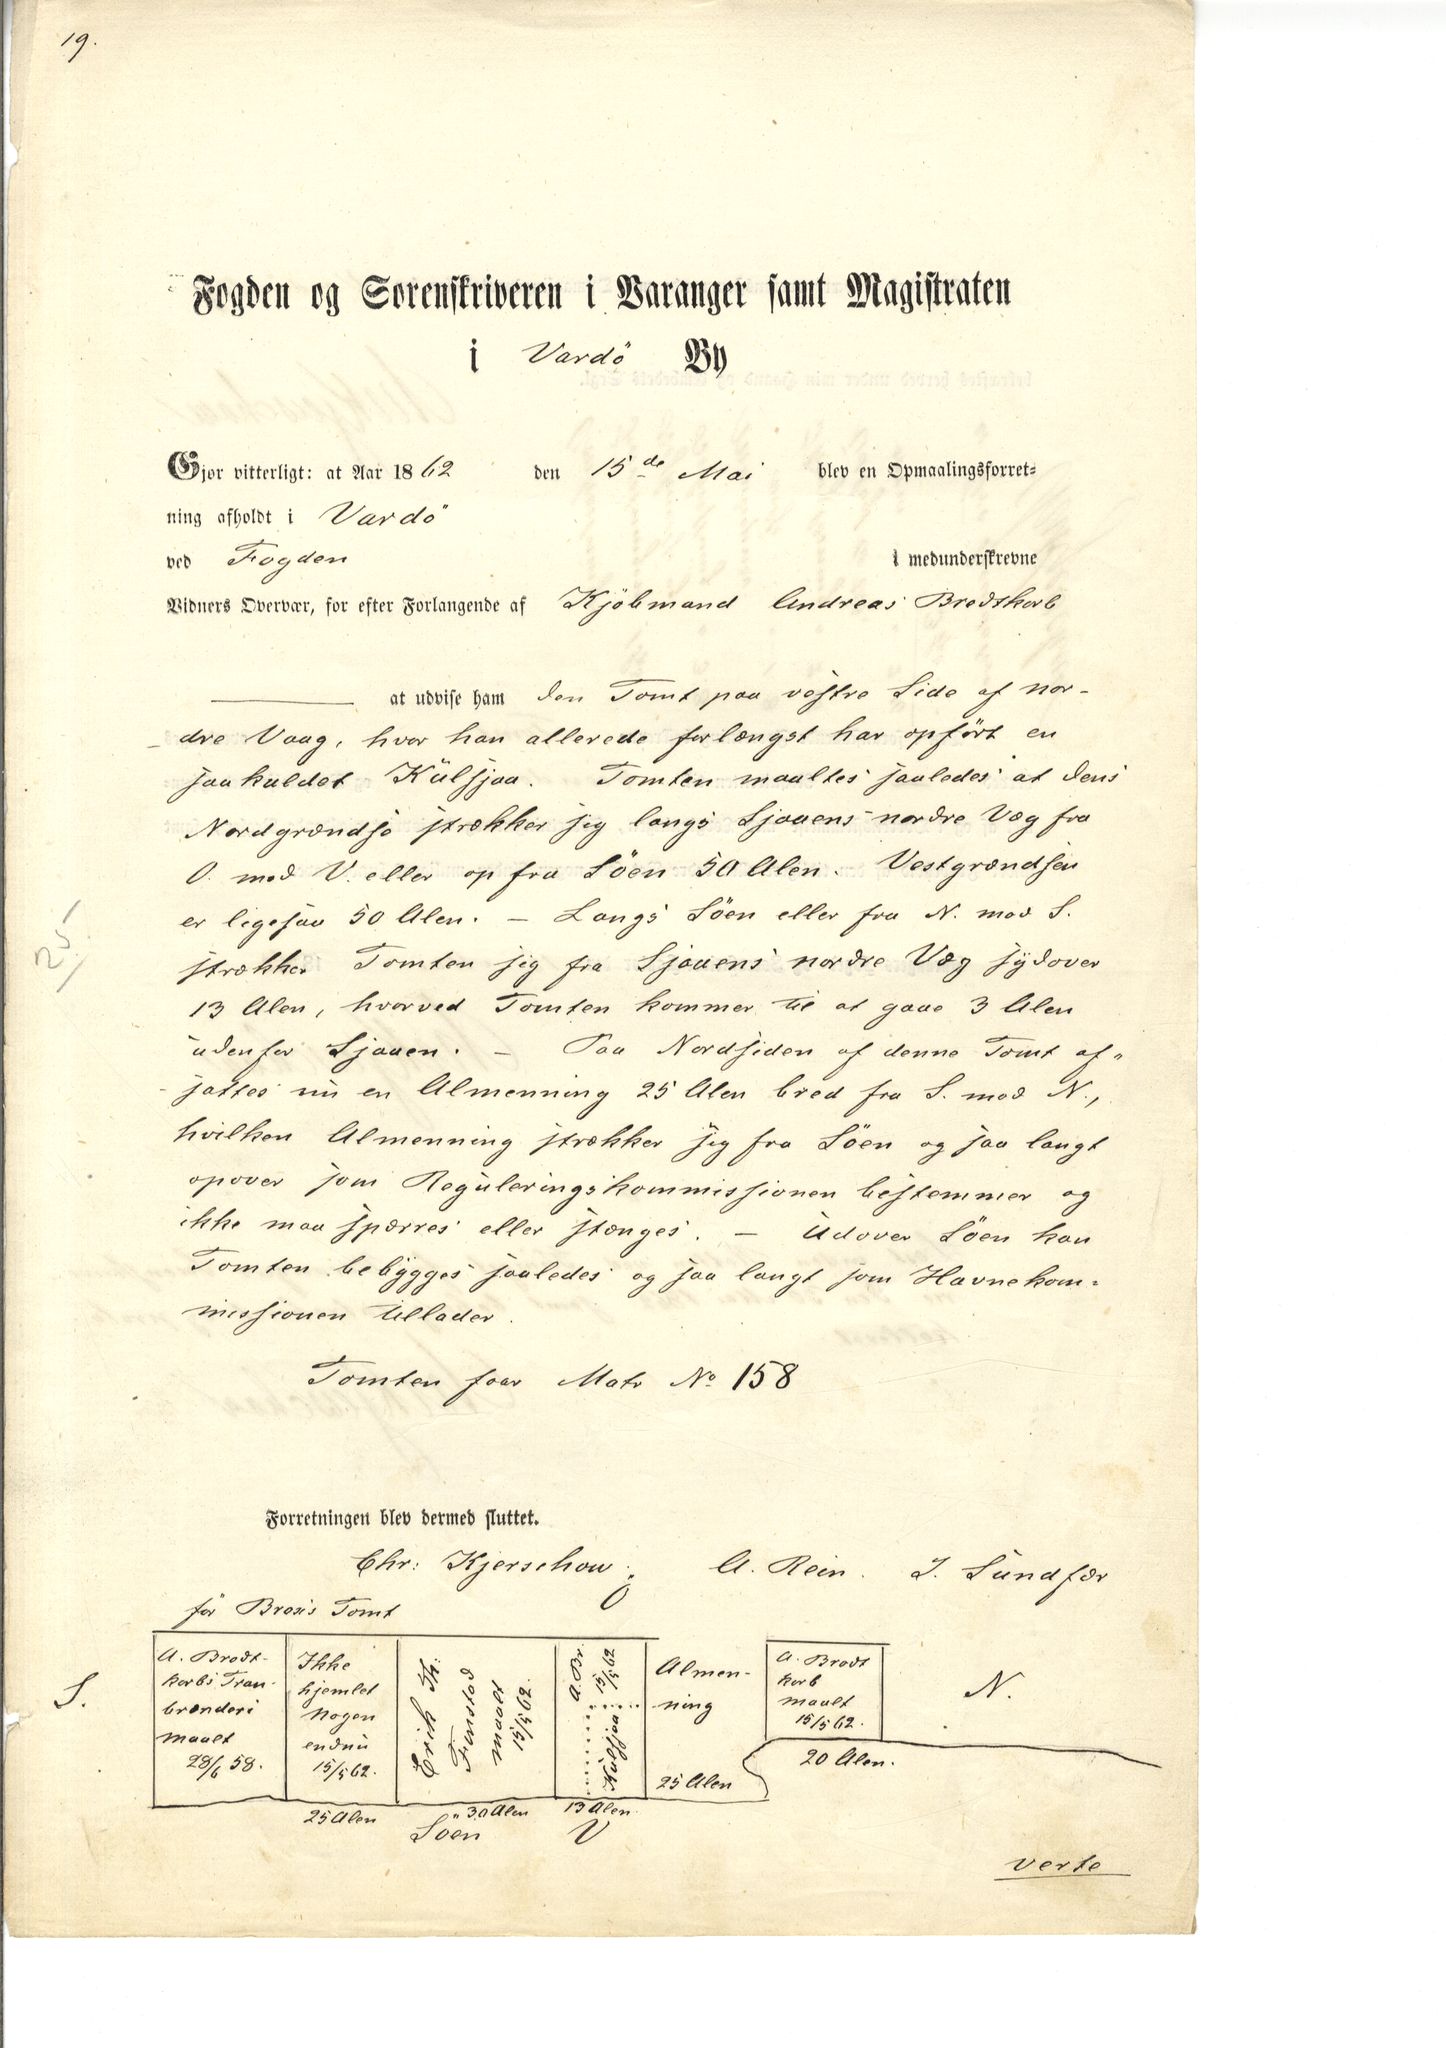 19.
Fogden og Sorenskriveren i Varanger samt Magistraten
i Vardö By
Gjør vitterligt: at Aar 1862 den 15de Mai blev en Opmaalingsforret-
ning afholdt i Vardö
ved Fogden i medunderskrevne
Vidners Overvær, for efter Forlangende af Kjöbmand Andreas Brodtkorb
at udvise ham den Tomt paa vestre Side af nor-
dre Vaag, hvor han allerede forlængst har opfört en
saakaldet Külsjaa. Tomten maaltes saaledes at dens
Nordgrændse strækker sig langs Sjaaens nordre Væg fra
O. mod V. eller op fra Söen 50 Alen. Vestgrændsen
er ligesaa 50 Alen. – Langs Söen eller fra N. mod S.
strækker Tomten sig fra Sjaaens nordre Væg sydover
13 Alen, hvorved Tomten kommer til at gaae 3 Alen
udenfor Sjaaen. – Paa Nordsiden af denne Tomt af-
sattes nu en Almenning 25 Alen bred fra S. mod N.,
hvilken Almenning strækker sig fra Söen og saa langt
opover som Reguleringskommissionen bestemmer og
ikke maa spærres eller stænges. – Udover Söen kan
Tomten bebygges saaledes og saa langt som Havnekom-
missionen tillader.
Tomten faar Matr No 158
25
Forretningen blev dermed sluttet.
Chr: Kjerschow. A. Rein. J. Sundfær
för Tomt
S.
A. Brodt-
korbs Tran-
brænderi
maalt
28/6 58.
Ikke
hjemlet
Nogen
endnu
15/5 62.
25 Alen
Erich
Finstad
maalt
15/5 62.
30 Alen
A. Br.
15/5 62
Külsjaa
13 Alen
Almen-
ning
25 Alen
A. Brodt
korb
maalt
15/5 62.
20 Alen.
N.
Söen
V
verte